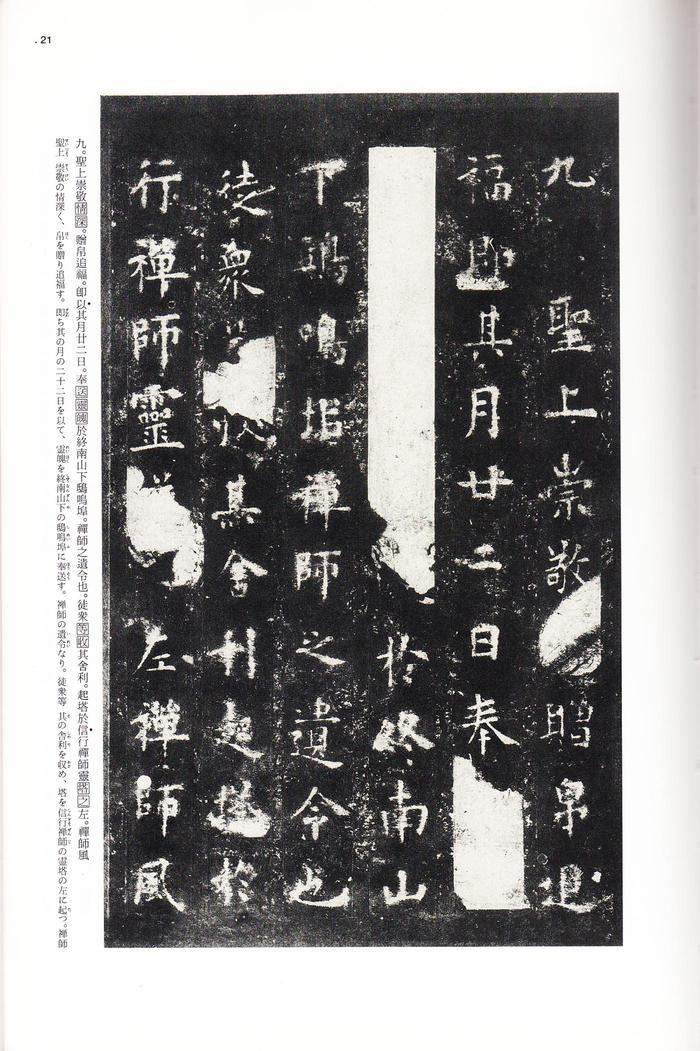 . 21
九 聖上崇敬 贈帛追
福即其月廿二日奉
於終南山
下鵄鳴塠禅師之遺令也
徒衆 收其舍利起塔於
行禅師靈塔 左禅師風
九。聖上崇敬情深。贈帛追福。卽以其月廿二日。奉送靈魄於終南山下鵄鳴埠。禪師之遺令也。徒衆等收其舍利。起塔於信行禪師靈塔之左。禪師風
聖上 崇敬の情深く、帛を贈り追福す。卽ち其の月の二十二日を以て、靈魄を終南山下の鵄鳴埠に奉送す。禅師の遺令なり。徒衆等 其の舎利を収め、塔を信行禅師の霊塔の左に起つ。禅師